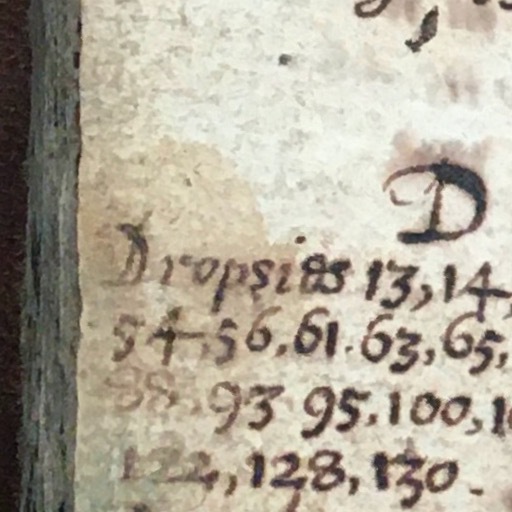 D
Dropsies 13, 14,
54, 56, 61. 63, 65,
88, 93 95, 100,
122, 128, 130.